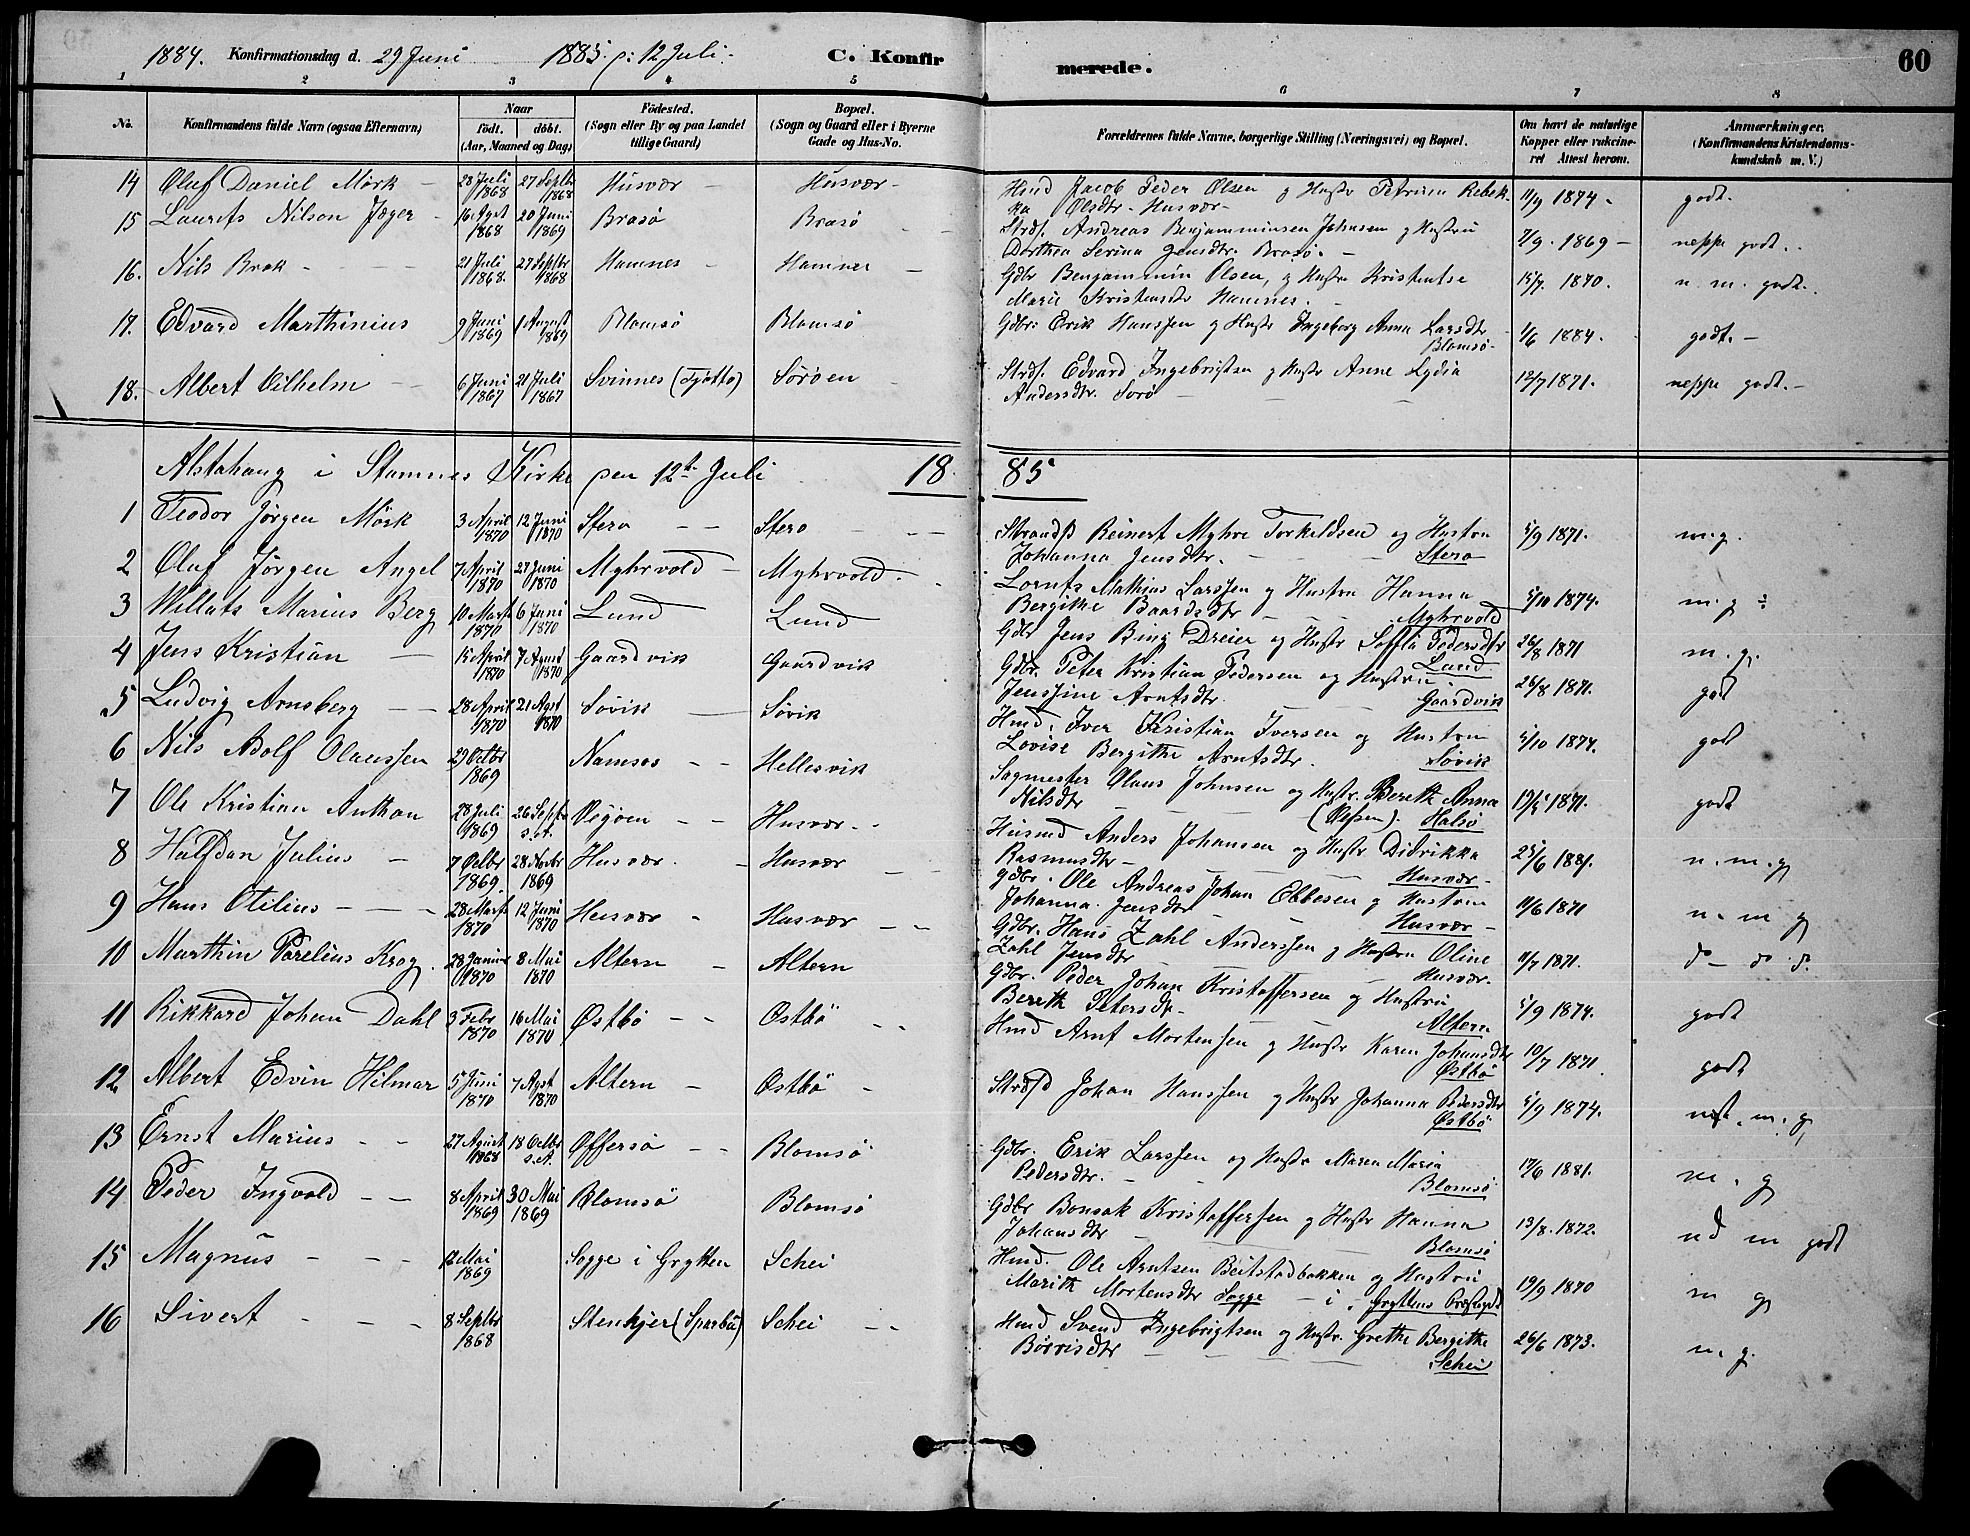 1884. Konfirmationsdag d. 29 Juni 1885 p: 12 Juli. C. Konfir merede. 60
1 2 3 4 5 6 7 8
No. Konfirmandens fulde Navn (ogsaa Efternavn) Naar født. døbt. (Aar, Maaned og Dag) Fødested. (Sogn eller By og paa Landet tillige Gaard) Bopæl. (Sogn og Gaard eller i Byerne Gade og Hus-No. Forældrenes fulde Navne, borgerlige Stilling (Næringsvei) og Bopæl. Om havt de naturlige Kopper eller vakcineret Attest herom. Anmærkninger. (Konfirmandens Kristendomskundskab m. V.)
14 Oluf Daniel Mörk - 28 Juli 1868 27 Septbr 1868 Husvær - Husvær - Hmd Jacob Peder Olsen g Hustr Petrine Rebekka Olsdtr - Husvær - 11/9 1874 - godt.
15 Laurits Nilson Jæger - 16 Agst 1868 20 Juni 1869 Brasø Brasø Strds. Andreas Benjaminsen Johnsen g Hustru Dorthea Serina Jensdtr. Brasø. - 7/9. 1869 - neppe godt.
16. Nils Brok - 21 Juli 1868. 27 Septbr 1868 Hamnes - Hamnes - Gdbr Benjammin Olsen, g Hustr Kristentse Marie Kristensdtr Hamnes. 15/7. 1870. n. m. godt.
17. Edvard Marthinius 9 Juni 1869 1 August 1869 Blomsö Blomsö Gdbr: Erik Hanssen g Hustr Ingeborg Anna Larsdtr Blomsö - 1/6 1884. godt. -
18. Albert Vilhelm - 6 Juni 1867 21 Juli 1867 Svinnes (Tjøttø) Sørøen Strds. Edvard Ingebrigtsen g Hustr Anne Lydia Andersdtr. Sørø - 12/7 1871. neppe godt. -
Alstahaug i Stamnes Kirke den 12te Juli 18. 85
1 Teodor Jørgen Mörk 3 April 1870 12 Juni 1870 Stero - - Stero - - Strandsd Reinert Myhre Torkeldsen og Hustru Johanna Jensdtr. - Stero 5/9 1871. m.g.
2 Oluf Jørgen Angel 7 April 1870 27 Juni 1870 Myhrvold - Myhrvold. Lornts Mathias Larssen g Hustru Hanna Bergithe Baardsdtr - Myhrvold 5/10 1874. m. g ÷
3 Willats Marius Berg 10 Marts 1870 6 Juni 1870 Lund Lund Gdbr Jens Bing Dreier og Hustr Sofia Pedersdtr Lund 26/8 1871 m. g.
4 Jens Kristian - 15 April 1870 7 August 1870 Gaardvik Gaardvik Gdbr. Peter Kristian Pedersen og Hustru Jenssine Arntsdtr. - Gaardvik 26/8 1871. god
5 Ludvig Arnsberg - - 28 April 1870 21 Agst 1870 Søvik - Søvik Hmd. Iver Kristian Iversen og Hustru Lovise Bergithe Arntsdtr. Søvik 5/10 1874. god
6 Nils Adolf Olaussen 29 Octbr 1869 Namsos - - Hellesvik Sagmester Olaus Johnsen og Hustr. Bereth Anna Nilsdtr - (Vefsen). Halsø 1871. godt
7 Ole Kristian Anthon 28 Juli 1869 26 Septbr s. A. Vegøen - - Husvær - - Husmd Anders Johansen og Hustr Didrikka Rasmusdtr - Husvær - 25/6 1881. n. m. g
8 Halfdan Julius - 7 Octbr 1869. 28 Novbr 1869 Husvær. - Husvær Gdbr. Ole Andreas Johan Ebbesen g Hustru Johanna Jensdtr - Husvær - 10/6 1871 n. m g
9 Hans Otilius - - - 28 Marts 1870 12 Juni 1870 Husvær - Husvær - - Gdbr. Hans Zahl Anderssen g Hustru Oline Zahl Jensdtr - Husvær. 11/7 1871. do - do. d.
10 Marthin Parelius Krog 28 Januar 1870 8 Mai 1870 Altern - Altern Gdbr. Peder Johan Kristoffersen og Hustru Bereth Petersdtr - Altern 5/9 1874. godt
11 Rikkard Johan Dahl 3 Febr 1870 16 Mai 1870 Østbø - - Ostbö - - Hmd Arnt Mortensen g Hustr Karen Johansdtr Østbö 10/7 1871. godt
12 Albert Edvin Hilmar 5 Juni 1870 7 Agst 1870 Altern - Ostbö - Strdsd Johan Hanssen g Hustr Johanna Pedersdtr Østbö 5/9 1874. nest. m. g
13 Ernst Marius - - 27 August 1868 18 Octbr s. A. Øffersø - - Blomsö Gdbr. Erik Larssen og Hustr Maren Maria Pedersdtr. - - Blomsö 17/6 1881. m. g
14 Peder Ingvold - - 8 April 1869 30 Mai 1869 Blomsö Blomsö Gdbr Bonsak Kristoffersen g Hustr Hanna Johansdtr - Blomsö 13/8. 1872. ud m godt
15 Magnus - - - 12 Mai 1869 Sogge i Grytten Schei Hmd. Ole Arntsen Beitstadbakken og Hustru Marith Mortensdtr Sogge - i Gryttens Præstegjd 19/9 1870 m g
16 Sivert - - - 8 Septbr 1868 Stenkjer (Sparbu) Schei - - Hmd Svend Ingebrigtsen og Hustr. Grethe Bergithe Børrisdtr - Schei 26/6 1873. n. g.